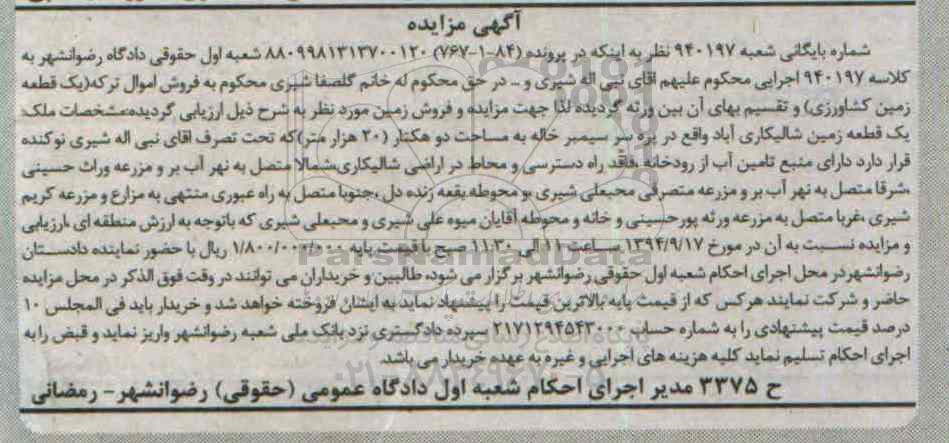 آگهی مزایده
شماره بایگانی شعبه ۹۴۰۱۹۷ نظر به اینکه در پرونده (۸۴-۱-۷۶۷) ۸۸۰۹۹۸۱۳۱۳۷۰۰۱۲۰ شعبه اول حقوقی دادگاه رضوانشهر به
کلاسه ۹۴۰۱۹۷ اجرایی محکوم علیهم اقای نبی اله شیری و ... در حق محکوم له خانم گلصفا شیری محکوم به فروش اموال ترکه(یک قطعه
زمین کشاورزی) و تقسیم بهای آن بین ورثه گردیده لذا جهت مزایده و فروش زمین مورد نظر به شرح ذیل ارزیابی گردیده.مشخصات ملک:
یک قطعه زمین شالیکاری آباد واقع در پره سر سیمبر خاله به مساحت دو هکتار (۲۰ هزار متر)که تحت تصرف اقای نبی اله شیری نوکنده
قرار دارد دارای منبع تامین آب از رودخانه ،فاقد راه دسترسی و محاط در اراضی شالیکاری،شمالا متصل به نهر آب بر و مزرعه وراث حسینی
،شرقا متصل به نهر آب بر و مزرعه متصرفی محبعلی شیری ،و محوطه بقعه زنده دل ،جنوبا متصل به راه عبوری منتهی به مزارع و مزرعه کریم
شیری ،غربا متصل به مزرعه ورثه پورحسینی و خانه و محوطه آقایان میوه علی شیری و محبعلی شیری که باتوجه به ارزش منطقه ای ،ارزیابی
و مزایده نسبت به آن در مورخ ۱۳۹۴/۹/۱۷ ساعت ۱۱ الی ۱۱:۳۰ صبح با قیمت پایه ۱/۸۰۰/۰۰۰/۰۰۰ ریال با حضور نماینده دادستان
رضوانشهردر محل اجرای احکام شعبه اول حقوقی رضوانشهر برگزار می شود، طالبین و خریداران می توانند در وقت فوق الذکر در محل مزایده
حاضر و شرکت نمایند هرکس که از قیمت پایه بالاترین قیمت را پیشنهاد نماید به ایشان فروخته خواهد شد و خریدار باید فی المجلس ۱۰
درصد قیمت پیشنهادی را به شماره حساب ۲۱۷۱۲۹۴۵۴۳۰۰۰ سپرده دادگستری نزد بانک ملی شعبه رضوانشهر واریز نماید و قبض را به
اجرای احکام تسلیم نماید کلیه هزینه های اجرایی و غیره به عهده خریدار می باشد.
ح ۳۳۷۵ مدیر اجرای احکام شعبه اول دادگاه عمومی (حقوقی) رضوانشهر- رمضانی
ParsNamadData